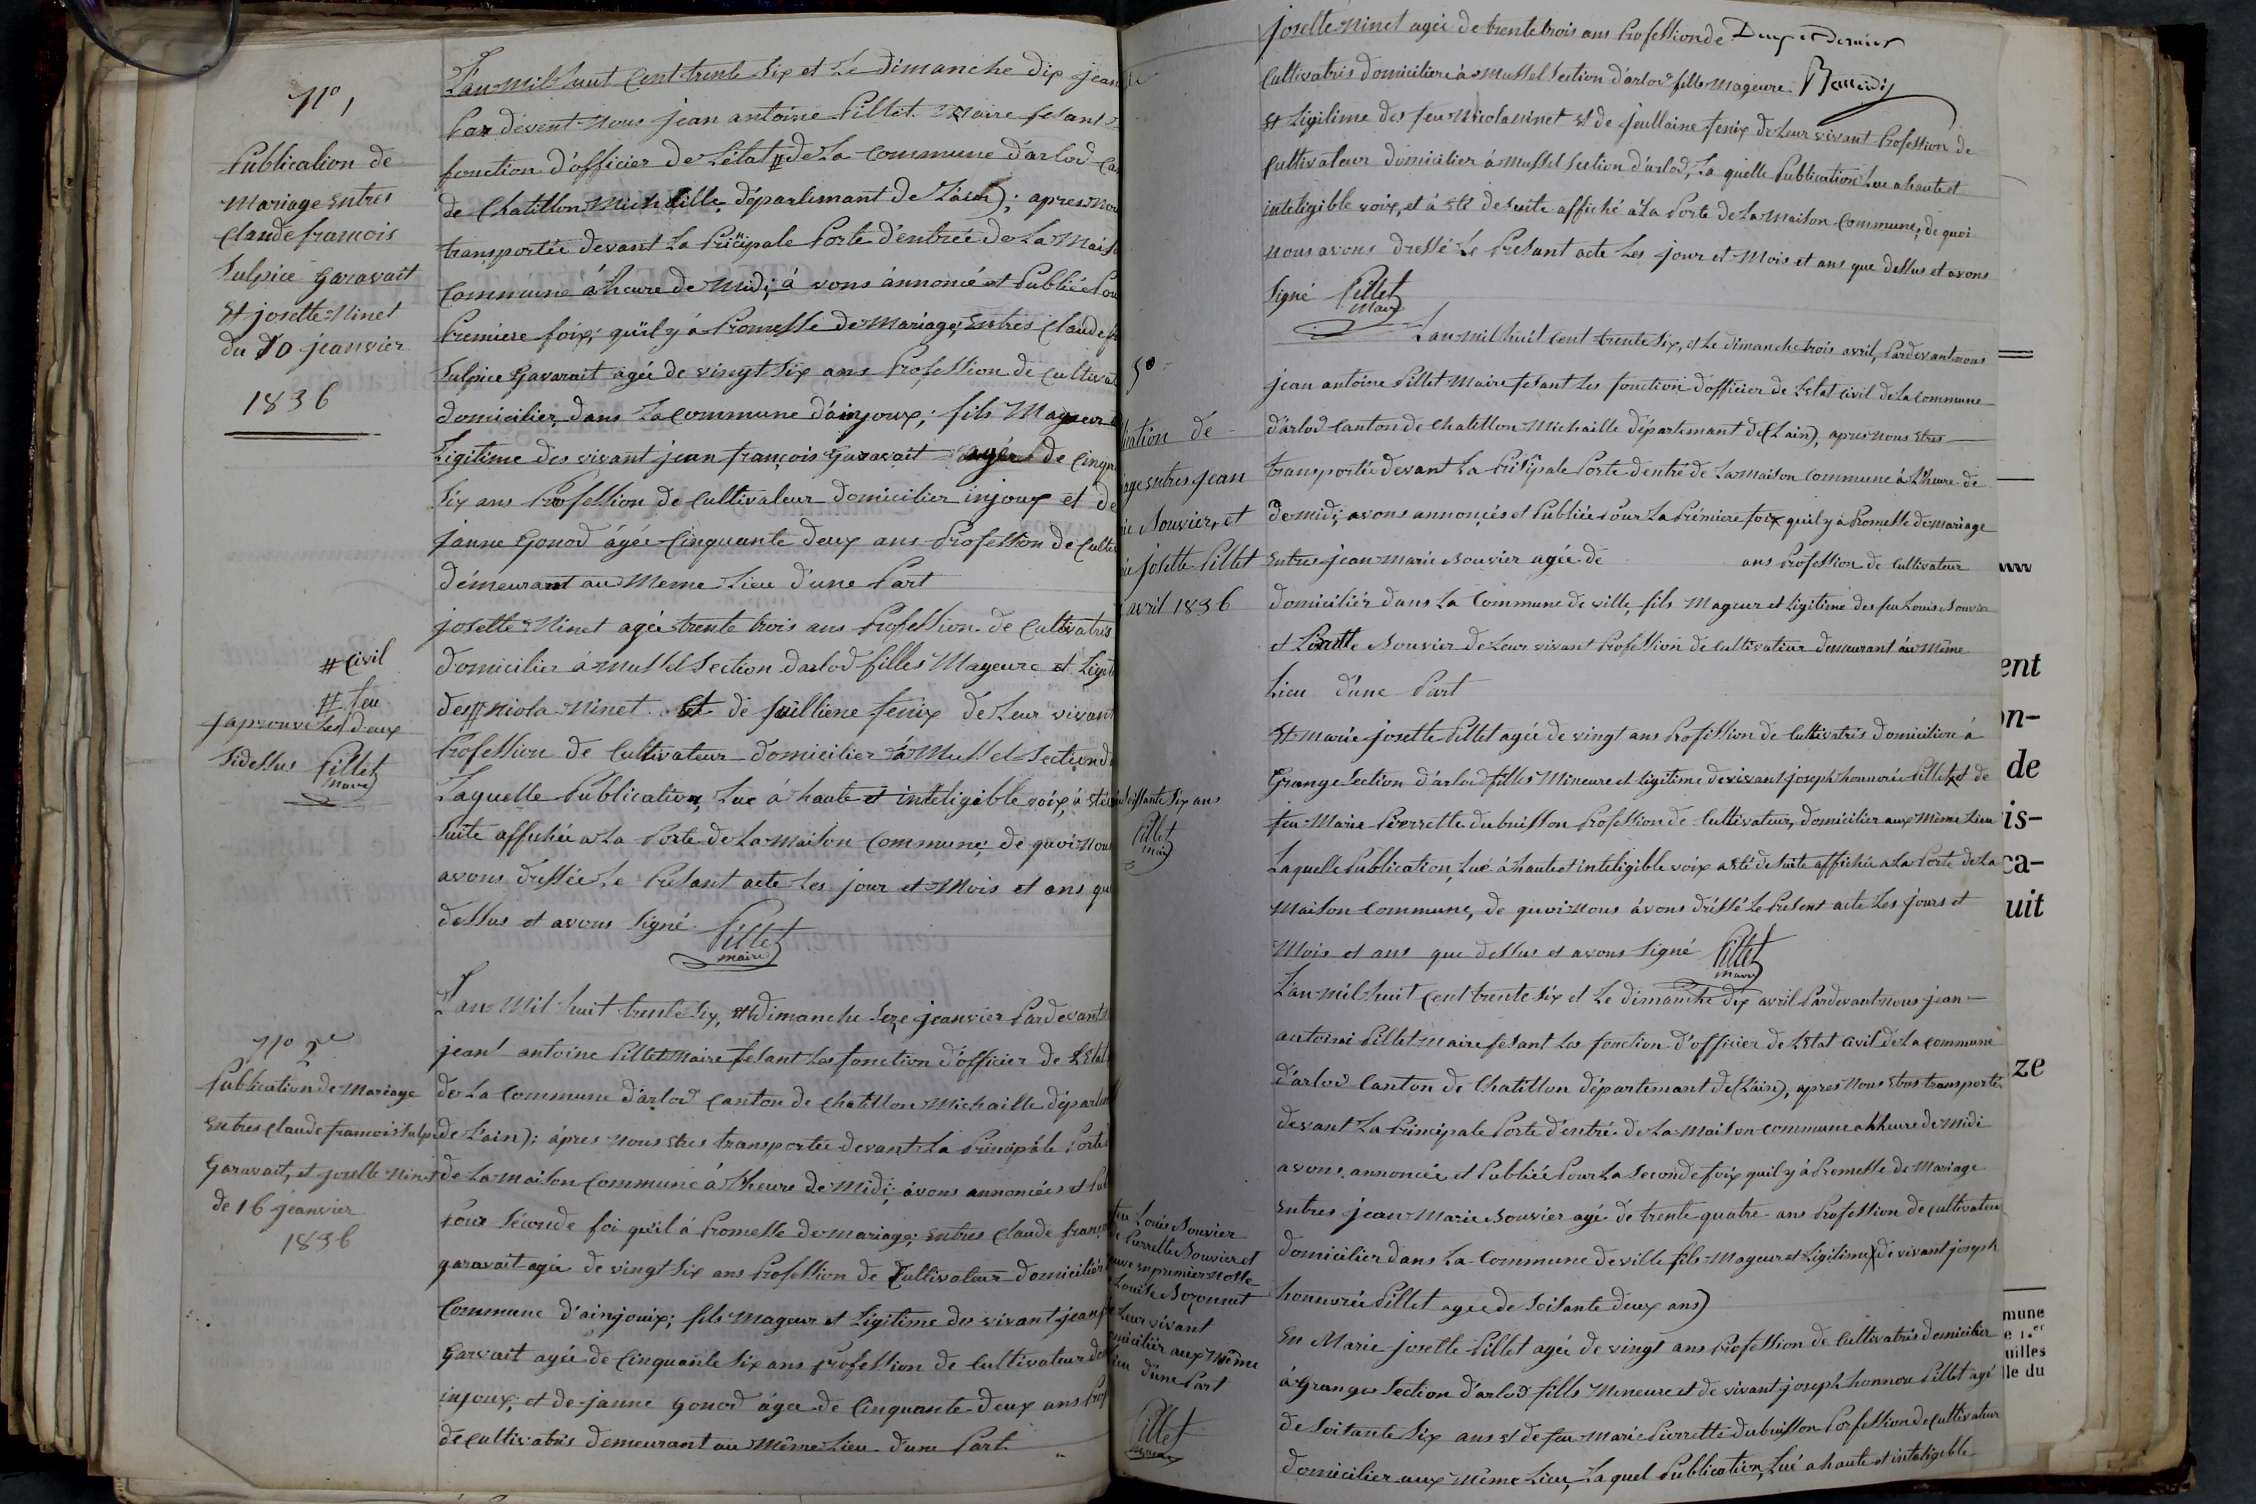 N° 1
Publication de
Mariage Entres
Claude françois
Sulpice Garavait
Et josette Ninet
du 10 jeanvier
1836
L'an Mil huit Cent trente Six et Le Dimanche dix jean
Par devent Nous jean antoine Pillet Maire fesant
fonction d'officier de L'état # de La Commune d'arlod
de Chatillon Michaille, département de L'ain); apres nou
transportée devant La Pricipale Porte d'entrée de La Mais
Commune à Lheure de Midi; à vons ànnoncé et Publiée Pou
Premiere foix; qu'il y à Promesse de Mariage; Entres Claude f
Sulpice Gavarait agée de vingt Six ans Profession de Cultivat
domicilier, dans La Commune d'ainjoux; fils Mageur
Legitime des vivant jean françois Garavait agée de Cinqu
Six ans Profession de Cultivateur domicilier injoux et de
janne Gonod àgée Cinquante deux ans Profession de Culti
démeurant au Meme Lieu d'une Part
josette Ninet agée trente trois ans Profession de Cultivatris
domicilier à Mussel Section darlod filles Mageure et Legit
des # Niola Ninet Et de juilliene fenix de Leur vivant
Profession de Cultivateur domicilier à Mussel Section d
Laquelle Publication, Lue à haute et inteligible voix, à été
Suite affichée a La Porte de La Maison Commune; de quoi Nous
avons dressée Le Présant acte Les jour et Mois et ans qu
dessus et avons Signé Pillet
maire
# Civil
# feu
japrouve Les deux
Sidessus Pillet
maire
N° 2
Publication de Mariage
Entres Claude francois Sulp
Garavait, et joselle Ninet
de 16 jeanvier
1836
L'an Mil huit trente Six, et Le dimanche Seze jeanvier Pardevant
jeant antoine Pillet Maire fesant Les fonction d'officier de L'Etat
de La Commune d'arlod Canton de Chatillon Michaille départ
de L'ain); àpres nous Etres transportée devant La Principale Porte
de La Maison Commune à Lheure de Midi; àvons annoncées et Pub
Pour Séconde foi qu'il à Promesse de mariage; Entres Claude franç
garavait agée de vingt Six ans Profession de Cultivateur domicilié
Commune d'ainjouix; fils Mageur et Legitime de vivant jean f
Garvait agée de Cinquante Six ans profession de Cultivateur de
injoux; et de janne Gonod àgée de Cinquante deux ans Prof
de Cultivatris demeurant au Même Lieu d'une Part
josette Ninet agée de trente trois ans Profession de Deux et Dernier
Cultivatris domiciliere à Mussel Section d'arlod fille Mageure
Et Legitime des feu Nicola ninet et de juillaine fenix de Leur vivant Profession de
Cultivateur domicilier à Mussel Section d'arlod, La quelle Publication Lue a haute et
inteligible voix, et à été de Suite affiché à La Porte de La Maison Commune, de quoi
nous avons dressé Le Présant acte Les jour et Mois et ans que dessus et avons
Signé Pillet
Maire
5°
iation de
age entres jean
ie Souvier, et
ie josette Pillet
avril 1836
L'an mil huit Cent trente Six, et Le dimanche trois avril, Pardevant nous
jean antoine Pillet Maire fesant Les fonction d'officier de L'Etat Civil de La Commune
d'arlod Canton de Chatillon Michaille département de L'ain), apres nous Etres
transportée devant La Pricipale Porte dentré de La maison Commune à Lheure de
de midi; avons annoncés et Publiée Pour La Prémiere foix qu'il y à Promesse de mariage
Entres jean Marie Souvier agée de ans Profession de Cultivateur
domiciliér dans La Commune de ville, fils Mageur et Legitime des feu Louis Souvier
et Souvier de Leur vivant Profession de Cultivateur demeurant àu Même
Lieu d'une Part
Et marie josette Pillet agée de vingt ans Profission de Cultivatris domiciliere à
Grange Section d'arlod filles Mineure et Legitime de vivant joseph honnorée Pillet et de
feu Marie Pierrette dubuisson Profession de Cultivateur, domicilier aux Même Lieu
Laquelle Publication, Lue à haute et inteligible voix a été de Suite affichée a La Porte de La
Maison Commune, de quoi Nous àvons dréssé Le Présent acte Les jours et
Mois et ans que dessus et avons Signé Pillet
maire
Soissante Six ans
Pillet
maire
L'an mil huit Cent trente Six et Le dimanche dix avril Pardevant nous jean
antoine Pillet maire fesant Les fonction d'officier de L'Etat Civil de La Commune
d'arlod Canton de Chatillon département de L'ain), apres Nous Etres transportée
devant La Principale Porte d'entré de La maison Commune à Lheure de Midi
avons annoncée et Publiée Pour La Seconde foix quil y à Promesse de Mariage
Entres jean Marie Souvier agé de trente quatre ans Profession de Cultivateur
domicilier dans La Commune de ville fils Mageur et Legitime de vivant joseph
honnorée Pillet agée de Soisante deux ans)
En Marie josette Pillet agée de vingt ans Profession de Cultivatris domicilier
à Granges Section d'arlod fills Meneure et de vivant joseph honnore Pillet agé
de Soisante Six ans et de feu Marie Pierrette dubuisson Porfession de Cultivateur
domicilier aux Même Lieu, Laquel Publication, Lué a haute et inteligible
feu Louis Souvier
Pierrette Souvier et
en premier Nosse
Louise
Leur vivant
micilier aux Même
Lieu d'une Part
Pillet
maire
ent
on-
de
is-
ca-
uit
ze
mune
uilles
lle du